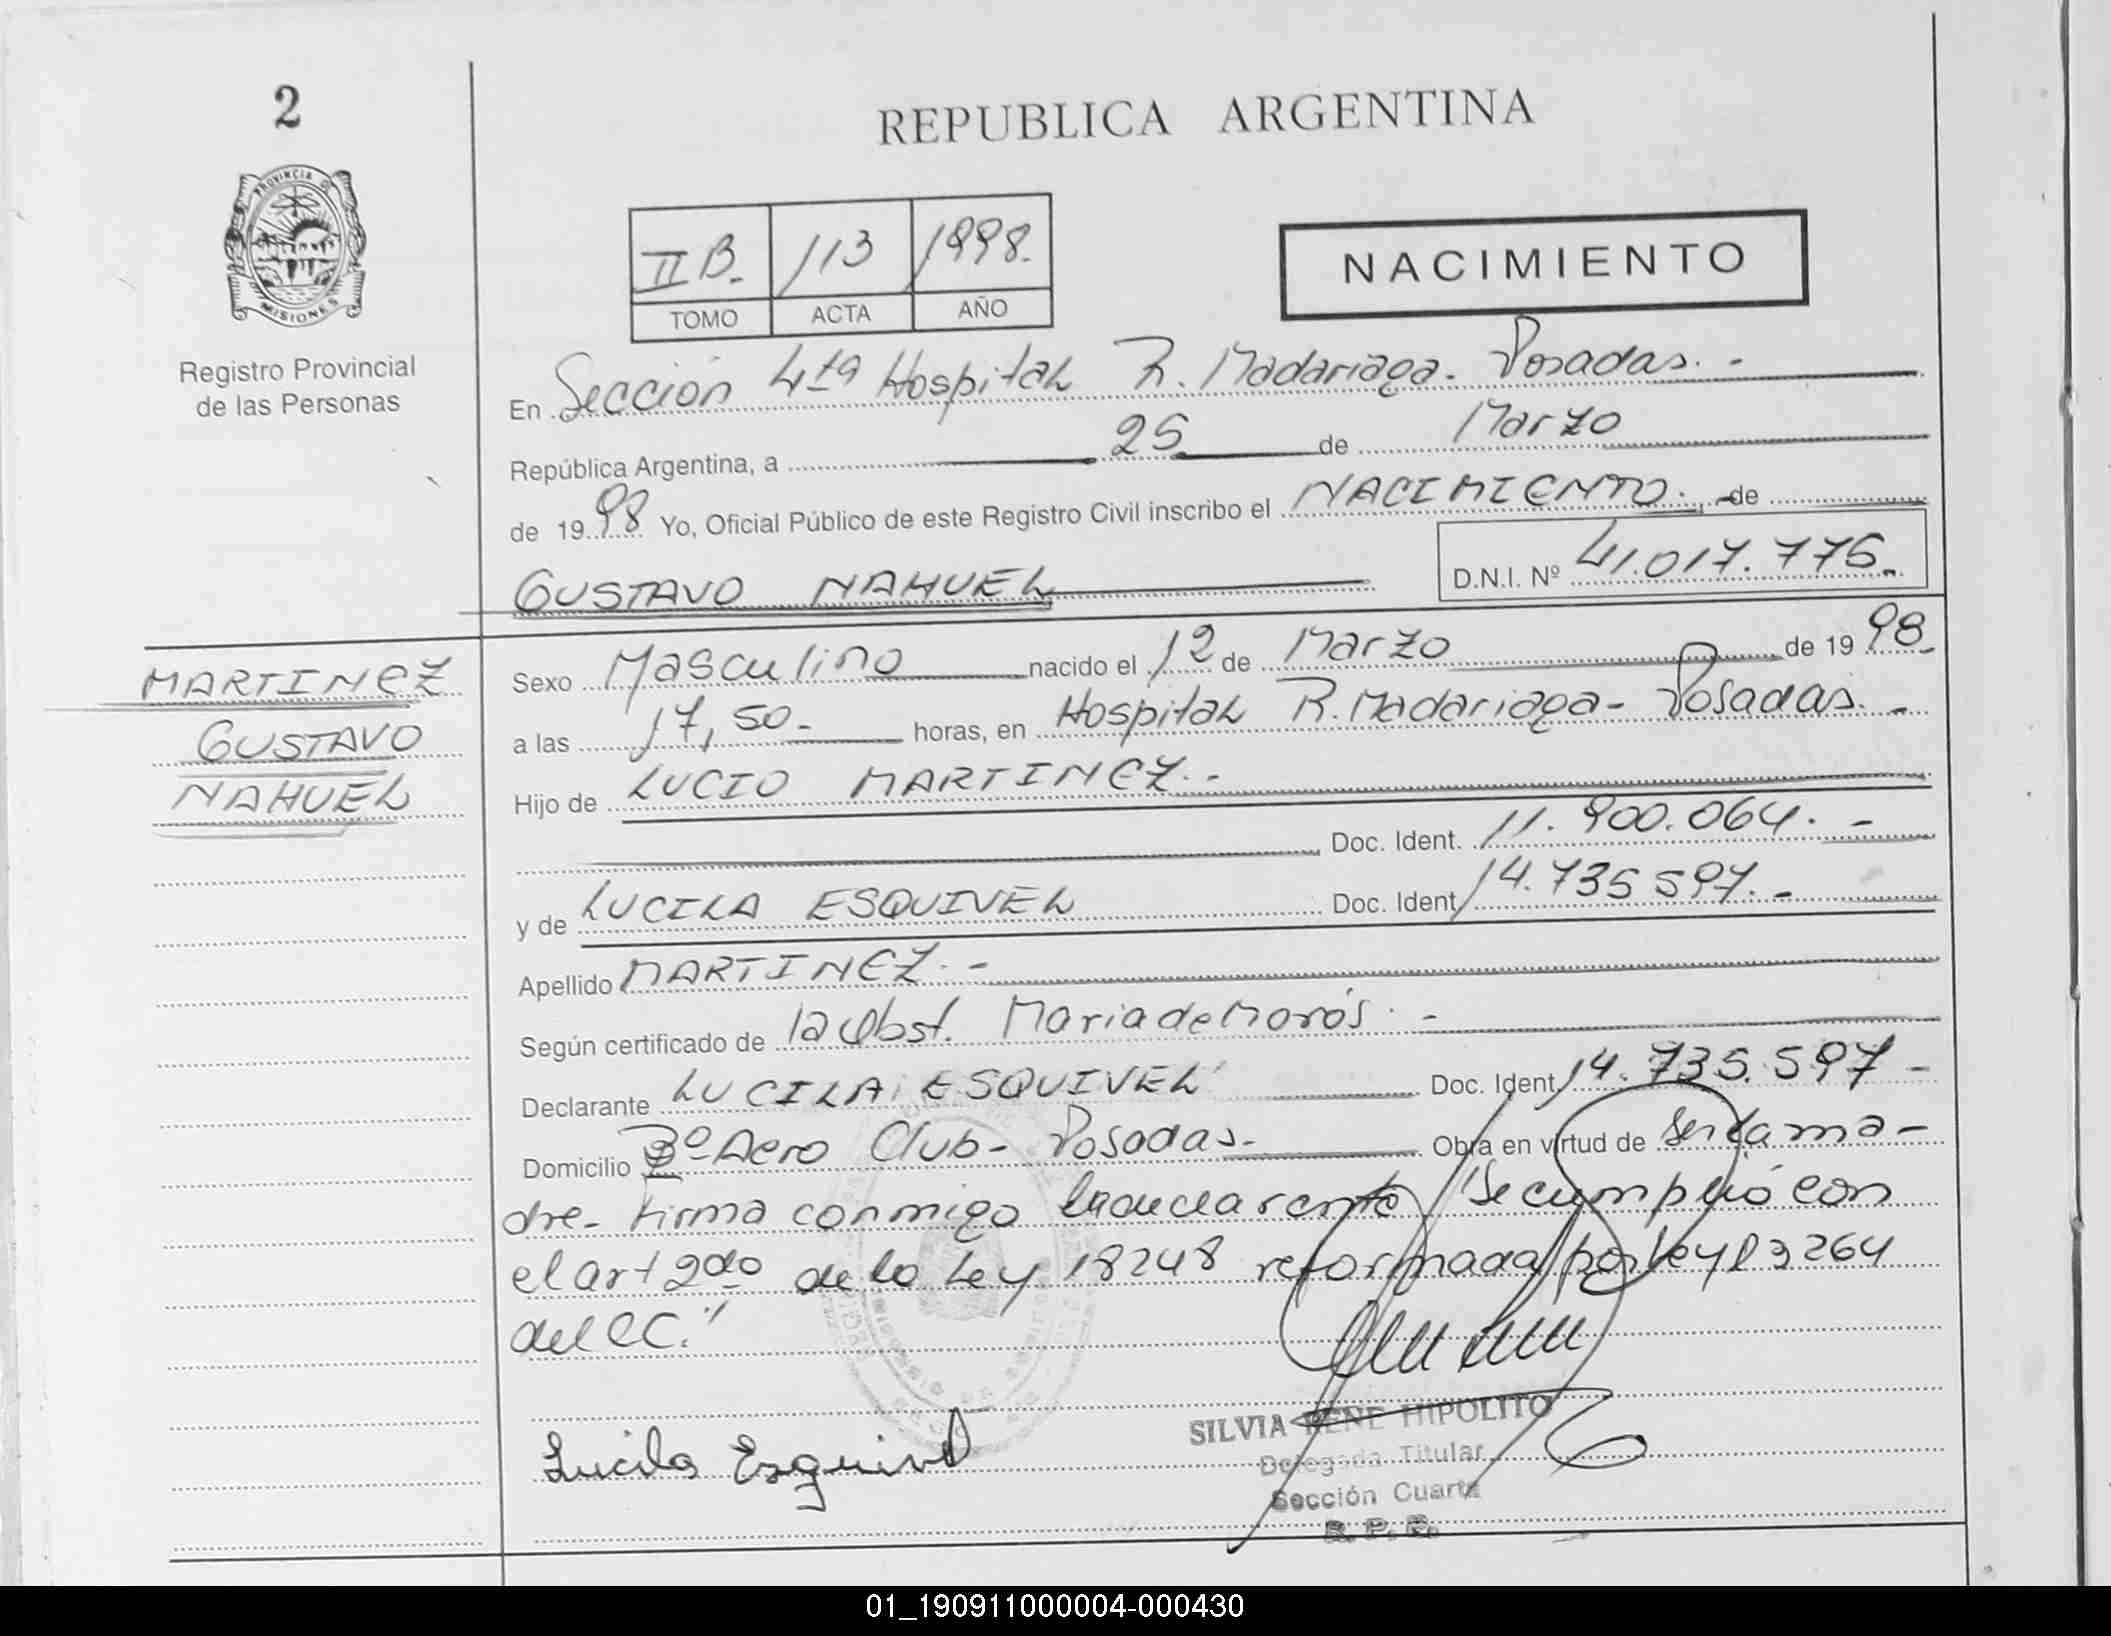 2
PROVINCIA DE
MISIONES
Registro Provincial
de las Personas
REPUBLICA ARGENTINA
II B. 113 1998.
TOMO ACTA AÑO
NACIMIENTO
En Sección 4ta Hospital R. Madariaga. Posadas. -
República Argentina, a 25 de Marzo
de 1998 Yo, Oficial Público de este Registro Civil inscribo el NACIMIENTO. de
GUSTAVO NAHUEL
D.N.I. Nº 41.017.775.
MARTINEZ
GUSTAVO
NAHUEL
Sexo Masculino nacido el 12 de Marzo de 1998.
a las 17,50.- horas, en Hospital R. Madariaga - Posadas. -
Hijo de LUCIO MARTINEZ. -
Doc. Ident. 11.900.064. -
y de LUCILA ESQUIVEL Doc. Ident 14.735597. -
Apellido MARTINEZ. -
Según certificado de la Obst. Maria de Morós. -
Declarante LUCILA ESQUIVEL Doc. Ident 14.735.597 -
Domicilio Bº Aero Club - Posadas.- Obra en virtud de ser la ma-
dre - firma conmigo la declarante "Se cumplió con
el art 2do de la Ley 18248 reformada por Ley 23264
del CC."
Lucila Esquivel
SILVIA RENE HIPOLITO
Delegada Titular
Sección Cuarta
R. P. P.
01_190911000004-000430